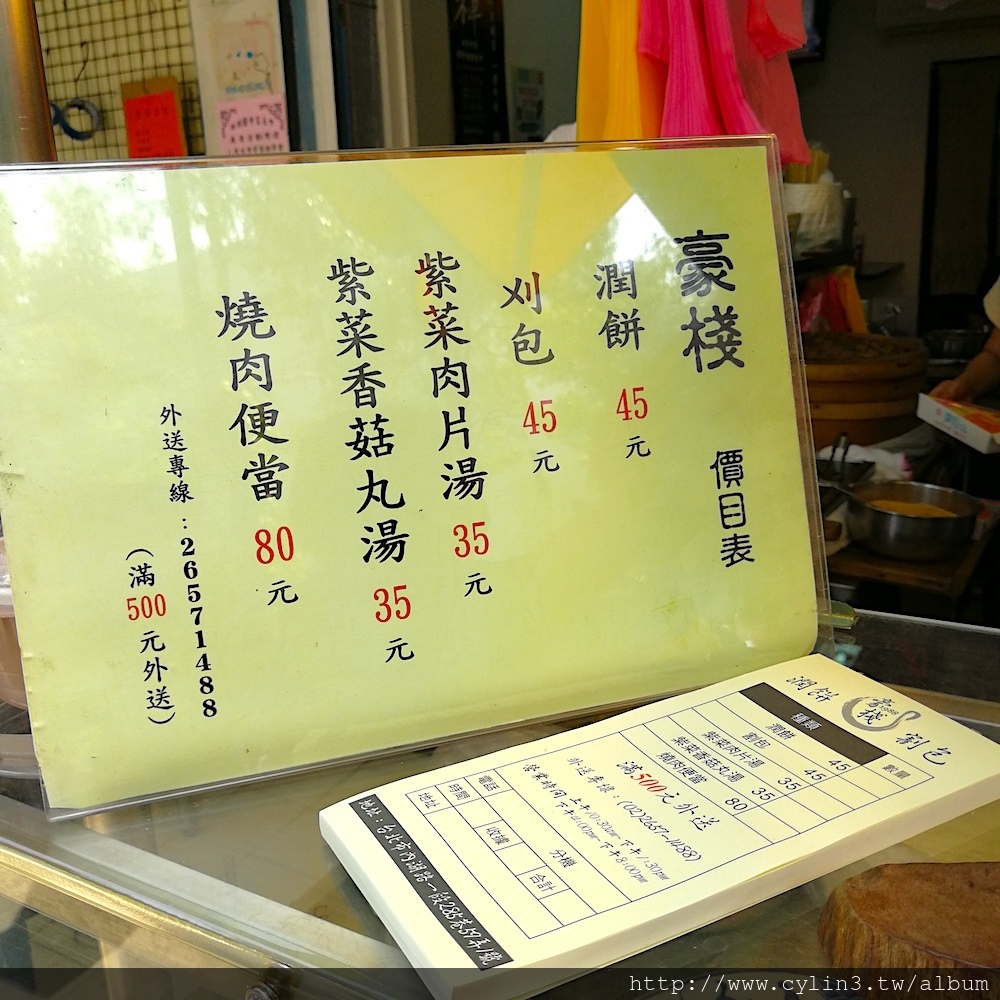 豪棧 價目表
潤餅 45元
刈包 45元
紫菜肉片湯 35元
紫菜香菇丸湯 35元
燒肉便當 80元
外送專線：26571488
（滿500元外送）
潤餅 豪棧 割包
種類 數量
潤餅 45
割包 45
紫菜肉片湯 35
紫菜香菇丸湯 35
燒肉便當 80
滿500元外送
外送專線：(02)2657-1488
營業時間 上午10:30am-下午1:30pm
下午4:00pm-下午8:00pm
電話 分機
時間 收據 合計
地址
地址：台北市內湖路一段285巷59弄1號
http://www.cylin3.tw/album